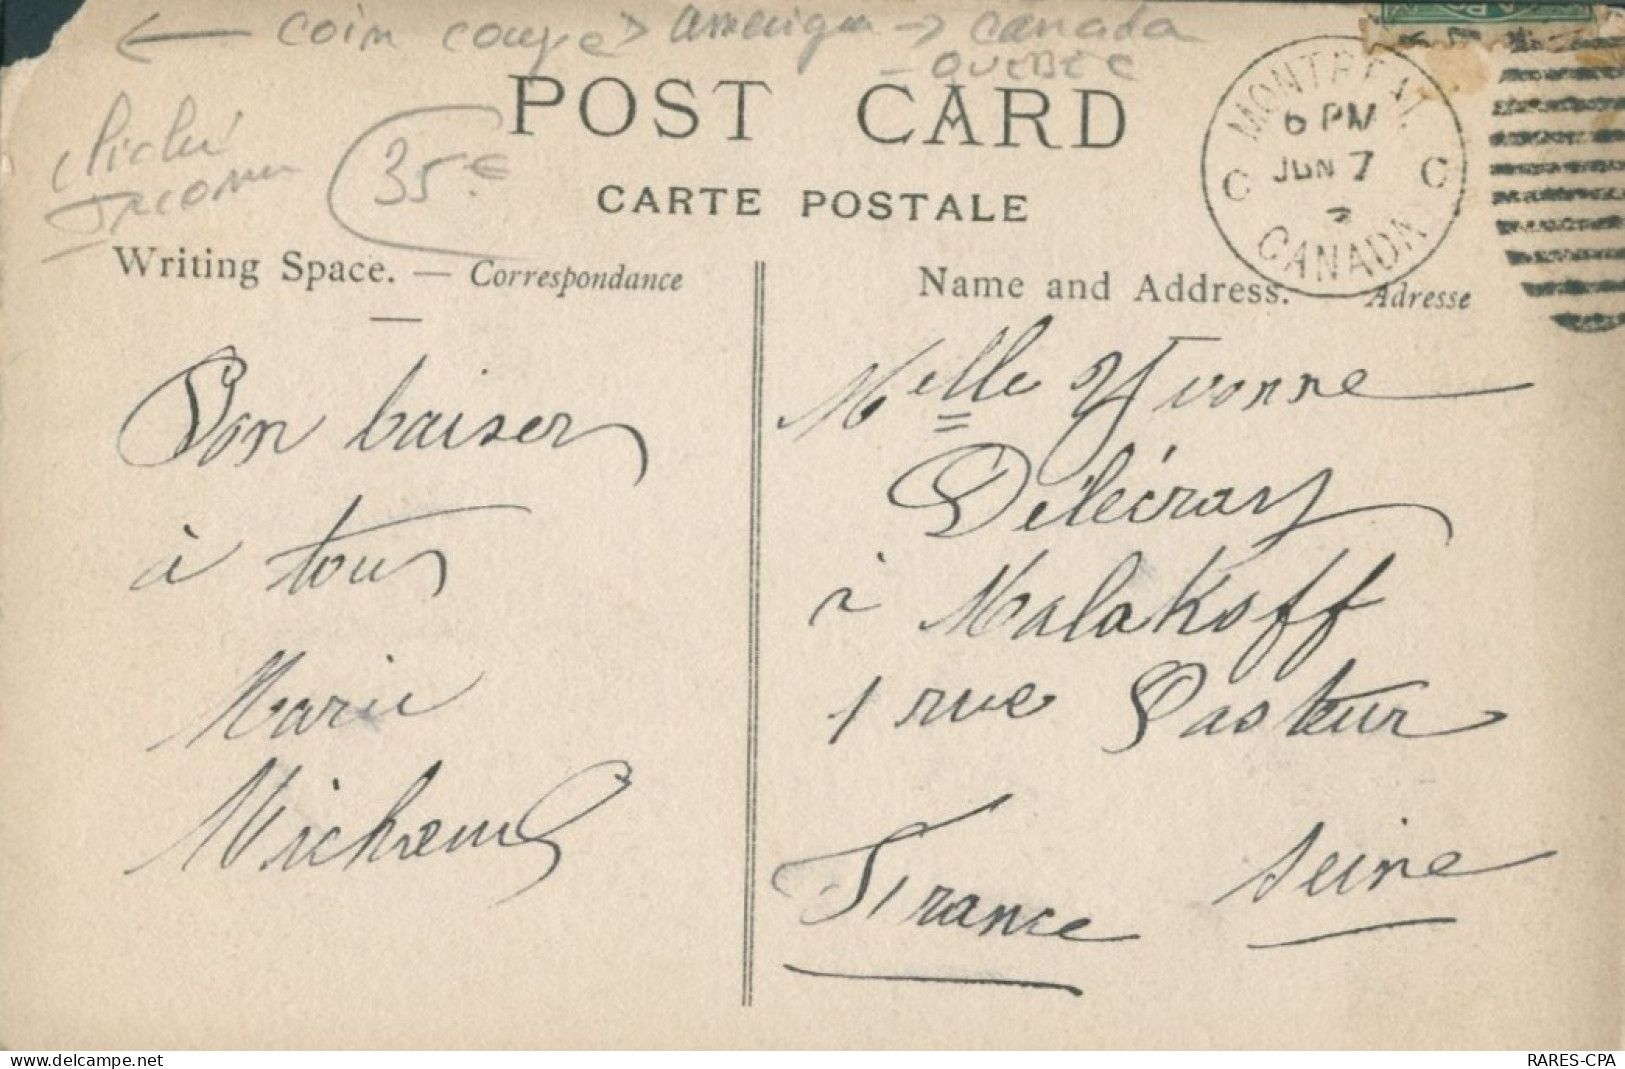 ← coin coupé > Amérique → Canada
- QUEBEC
POST CARD
35.€
cliché
CARTE POSTALE
MONTREAL
6 PM
JUN 7
C C
CANADA
Writing Space. — Correspondance
Name and Address. — Adresse
Bon baiser
à tous
Marie
Melle Yvonne
à Malakoff
1 rue Pasteur
Seine
France
delcampe.net
RARES-CPA